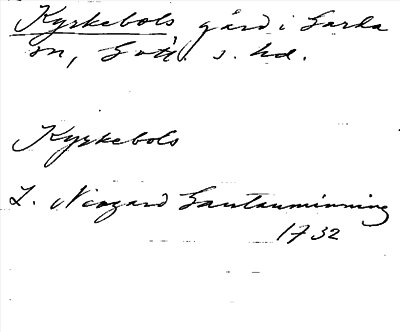 Kyrkebols gård i Garda
sn, Gotl. s. hd.
Kyrkebols
L. Neogard Gautauminning
1732